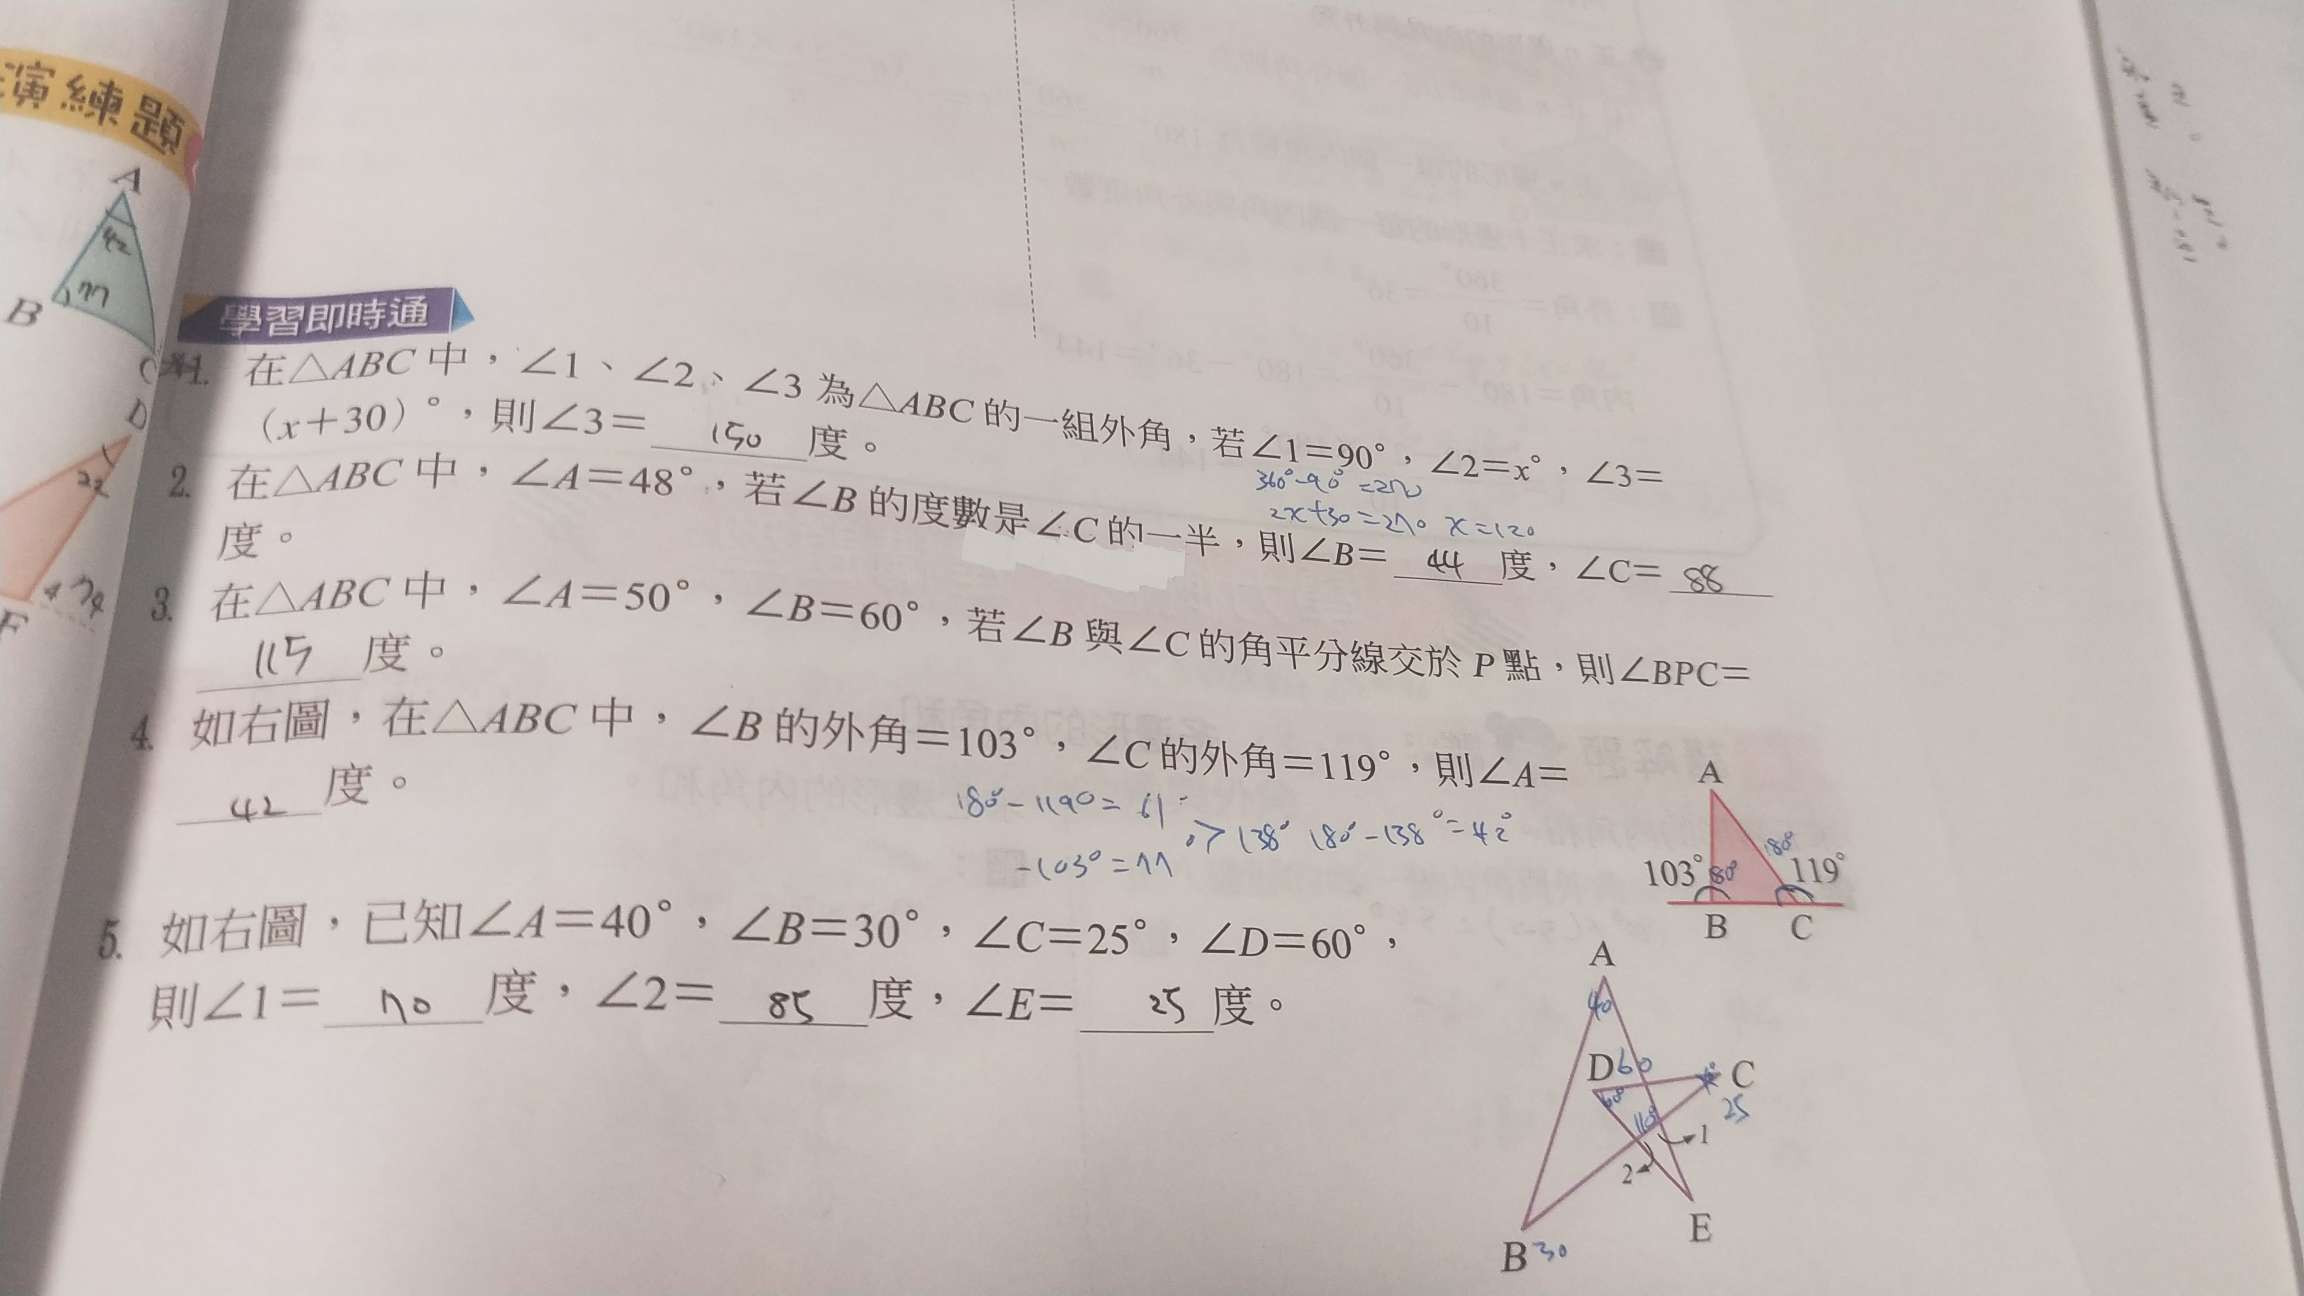 演練題
A
42
B
77
C
D
22
F
74
學習即時通
1. 在△ABC中，∠1、∠2、∠3為△ABC的一組外角，若∠1=90°，∠2=x°，∠3=
(x+30)°，則∠3= 150 度。
360°-90°=270
2x+30=270 x=120
2. 在△ABC中，∠A=48°，若∠B的度數是∠C的一半，則∠B= 44 度，∠C= 88
度。
3. 在△ABC中，∠A=50°，∠B=60°，若∠B與∠C的角平分線交於P點，則∠BPC=
115 度。
4. 如右圖，在△ABC中，∠B的外角=103°，∠C的外角=119°，則∠A=
42 度。
180°-119°=61
>138° 180°-138°=42°
-103°=77
A
103° 80° 180° 119°
B C
5. 如右圖，已知∠A=40°，∠B=30°，∠C=25°，∠D=60°，
則∠1= 70 度，∠2= 85 度，∠E= 25 度。
A
40
D60 C
60° 25
110°
1
2
E
B30